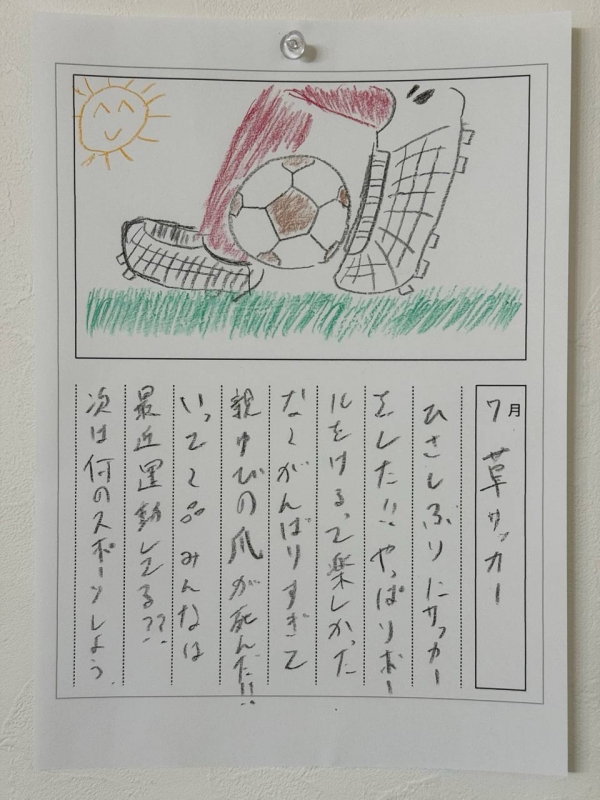 7月 草サッカー
ひさしぶりにサッカー
をした!! やっぱりボー
ルをけるって楽しかった
なくがんばりすぎて
親ゆびの爪が死んだ!!
いって みんなは
最近運動してる??
次は何のスポーツしよう.